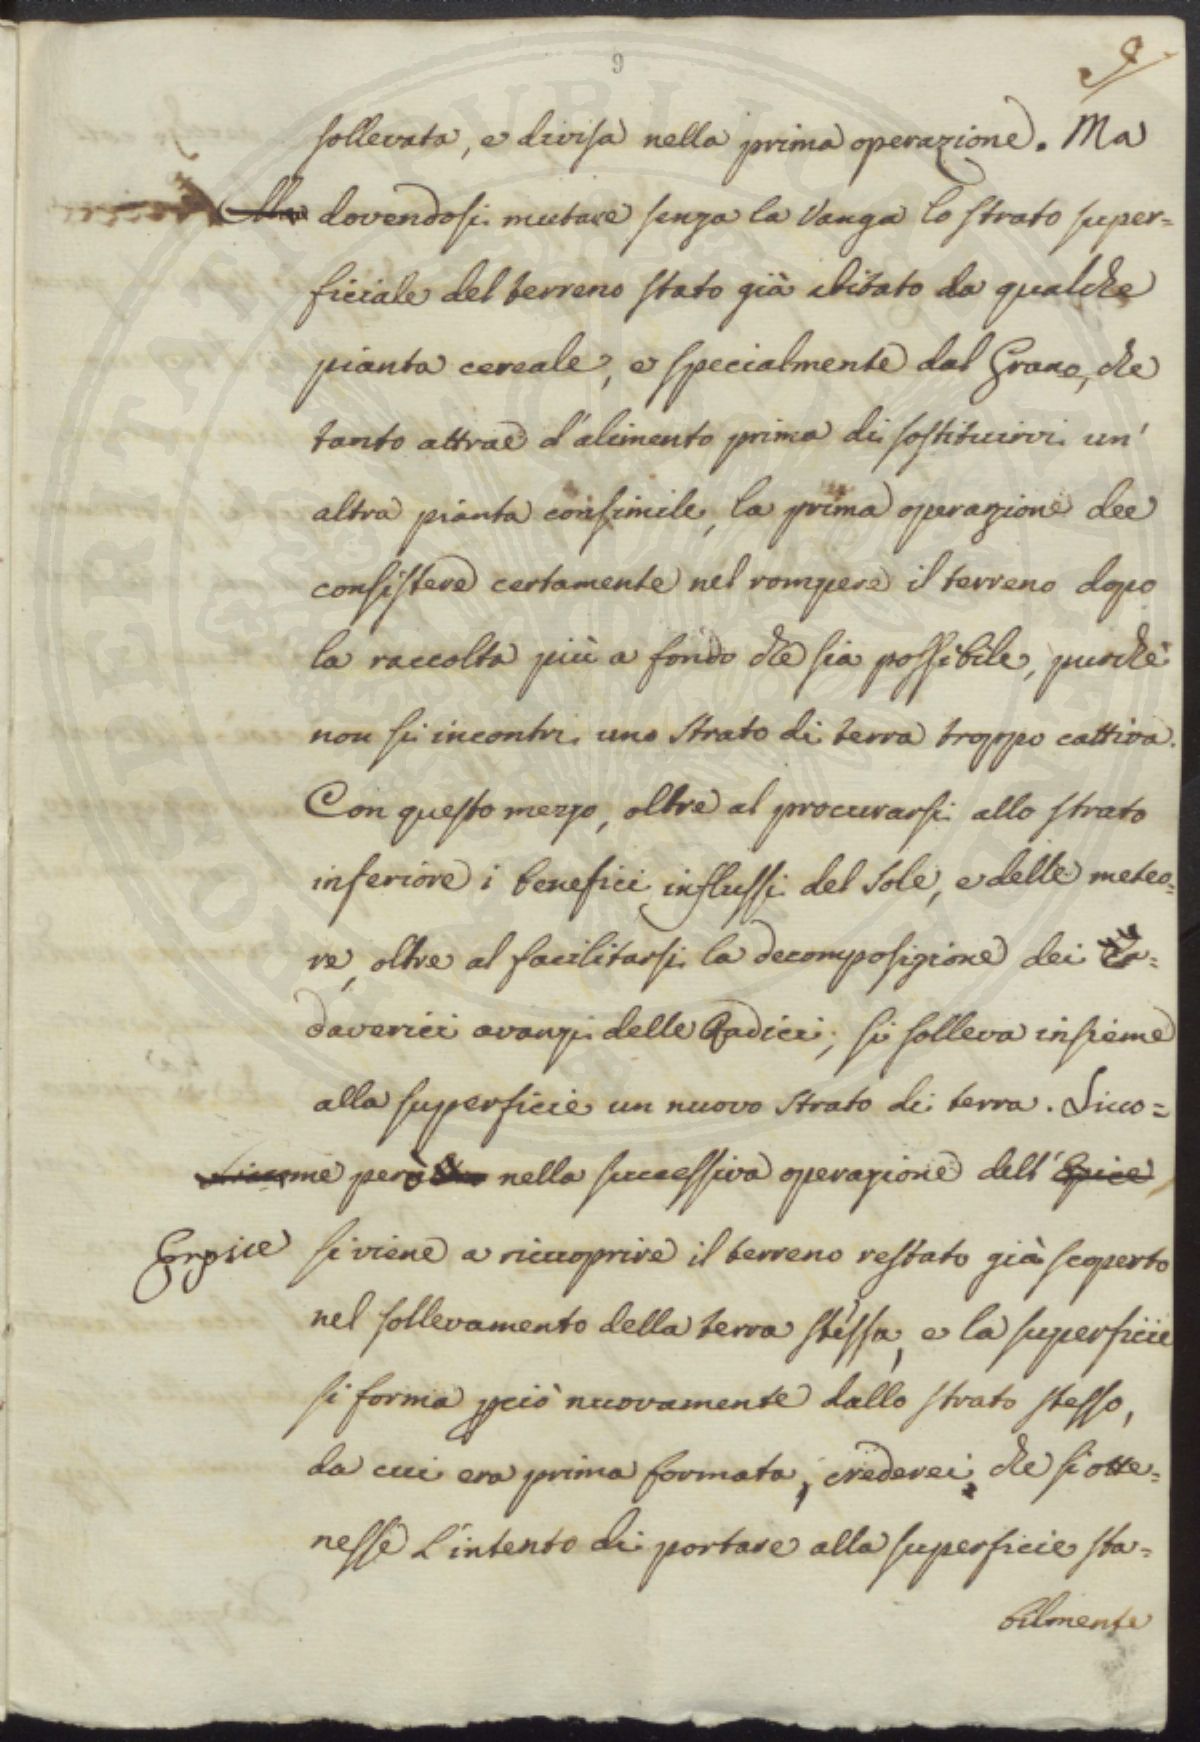 9
9
sollevata, e divisa nella prima operazione. Ma
Ma dovendosi mutare senza la Vanga lo strato super=
ficiale del terreno stato già abitato da qualche
pianta cereale, e specialmente dal Grano, che
tanto attrae d'alimento prima di sostituirvi un'
altra pianta consimile, la prima operazione dee
consistere certamente nel rompere il terreno dopo
la raccolta più a fondo che sia possibile, purchè
non si incontri uno strato di terra troppo cattiva.
Con questo mezzo, oltre al procurarsi allo strato
inferiore i benefici influssi del Sole, e delle meteo=
re, oltre al facilitarsi la decomposizione dei Ca=
daverici avanzi delle Radici, si solleva insieme
alla superficie un nuovo strato di terra. Sicco=
me però nella successiva operazione dell' Epice
Erpice si viene a ricuoprire il terreno restato già scoperto
nel sollevamento della terra stessa, e la superficie
si forma perciò nuovamente dallo strato stesso,
da cui era prima formata, crederei, che si otte=
nesse l'intento di portare alla superficie sta=
bilmente